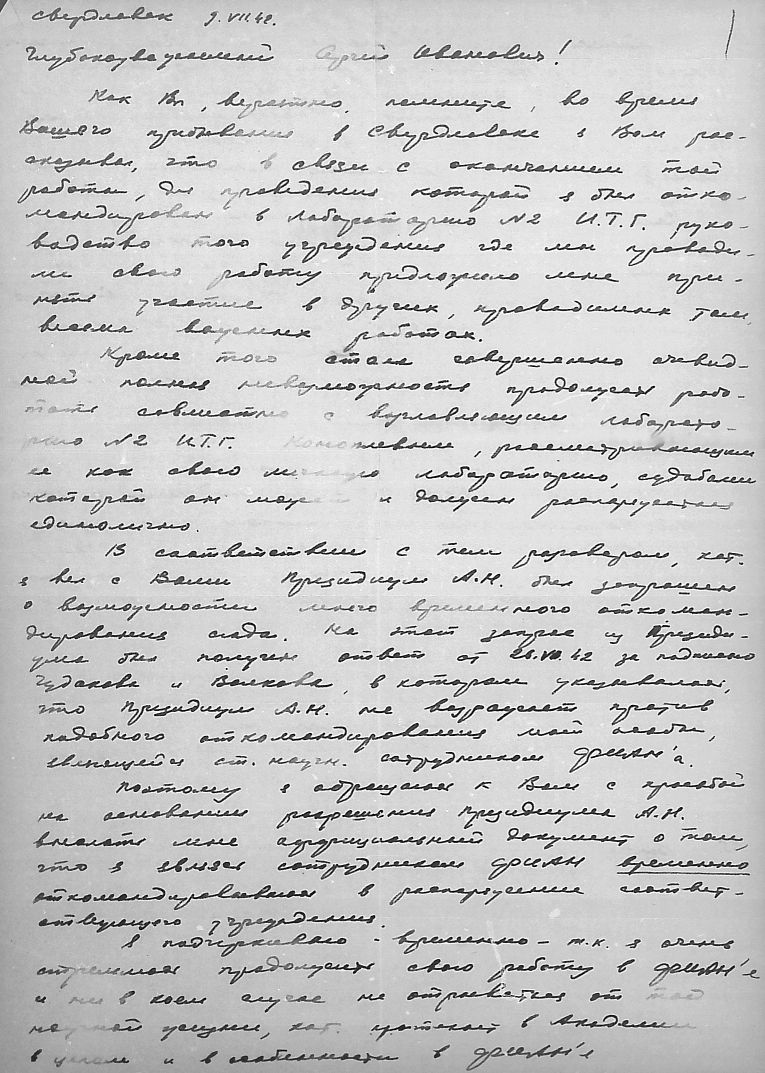 Свердловск 9.VII.42.
Глубокоуважаемый Сергей Иванович!
Как Вы, вероятно, помните, во время
Вашего пребывания в Свердловске я Вам рас-
сказывал, что в связи с окончанием той
работы, для проведения которой я был отко-
мандирован в лабораторию N2 И.Т.Г. руко-
водство того учреждения где мы проводи-
ли свою работу предложило мне при-
нять участие в других, проводимых там,
весьма важных работах.
Кроме того стала совершенно очевид-
ной полная невозможность продолжать рабо-
тать совместно с возглавляющим лаборато-
рию N2 И.Т.Г. , рассматривающим
ее как свою личную лабораторию, судьбами
которой он может и должен распоряжаться
единолично.
В соответствии с тем разговором, кот.
я вел с Вами Президиум А.Н. был запрошен
о возможности моего временного откоман-
дирования сюда. На этот запрос из Президи-
ума был получен ответ от 26.VI.42 за подписью
Чудакова и Волкова, в котором указывалось,
что Президиум А.Н. не возражает против
подобного откомандирования моей особы,
являющейся ст. научн. сотрудником ФИАН'а.
Поэтому я обращаюсь к Вам с просьбой
на основании разрешения Президиума А.Н.
выслать мне официальный документ о том,
что я являюсь сотрудником ФИАН временно
откомандированным в распоряжение соответ-
ствующего учреждения.
Я подчеркиваю - временно - т.к. я очень
стремлюсь продолжить свою работу в ФИАН'е
и ни в коем случае не отрываться от той
научной жизни, кот. протекает в Академии
в целом и в особенности в ФИАН'е